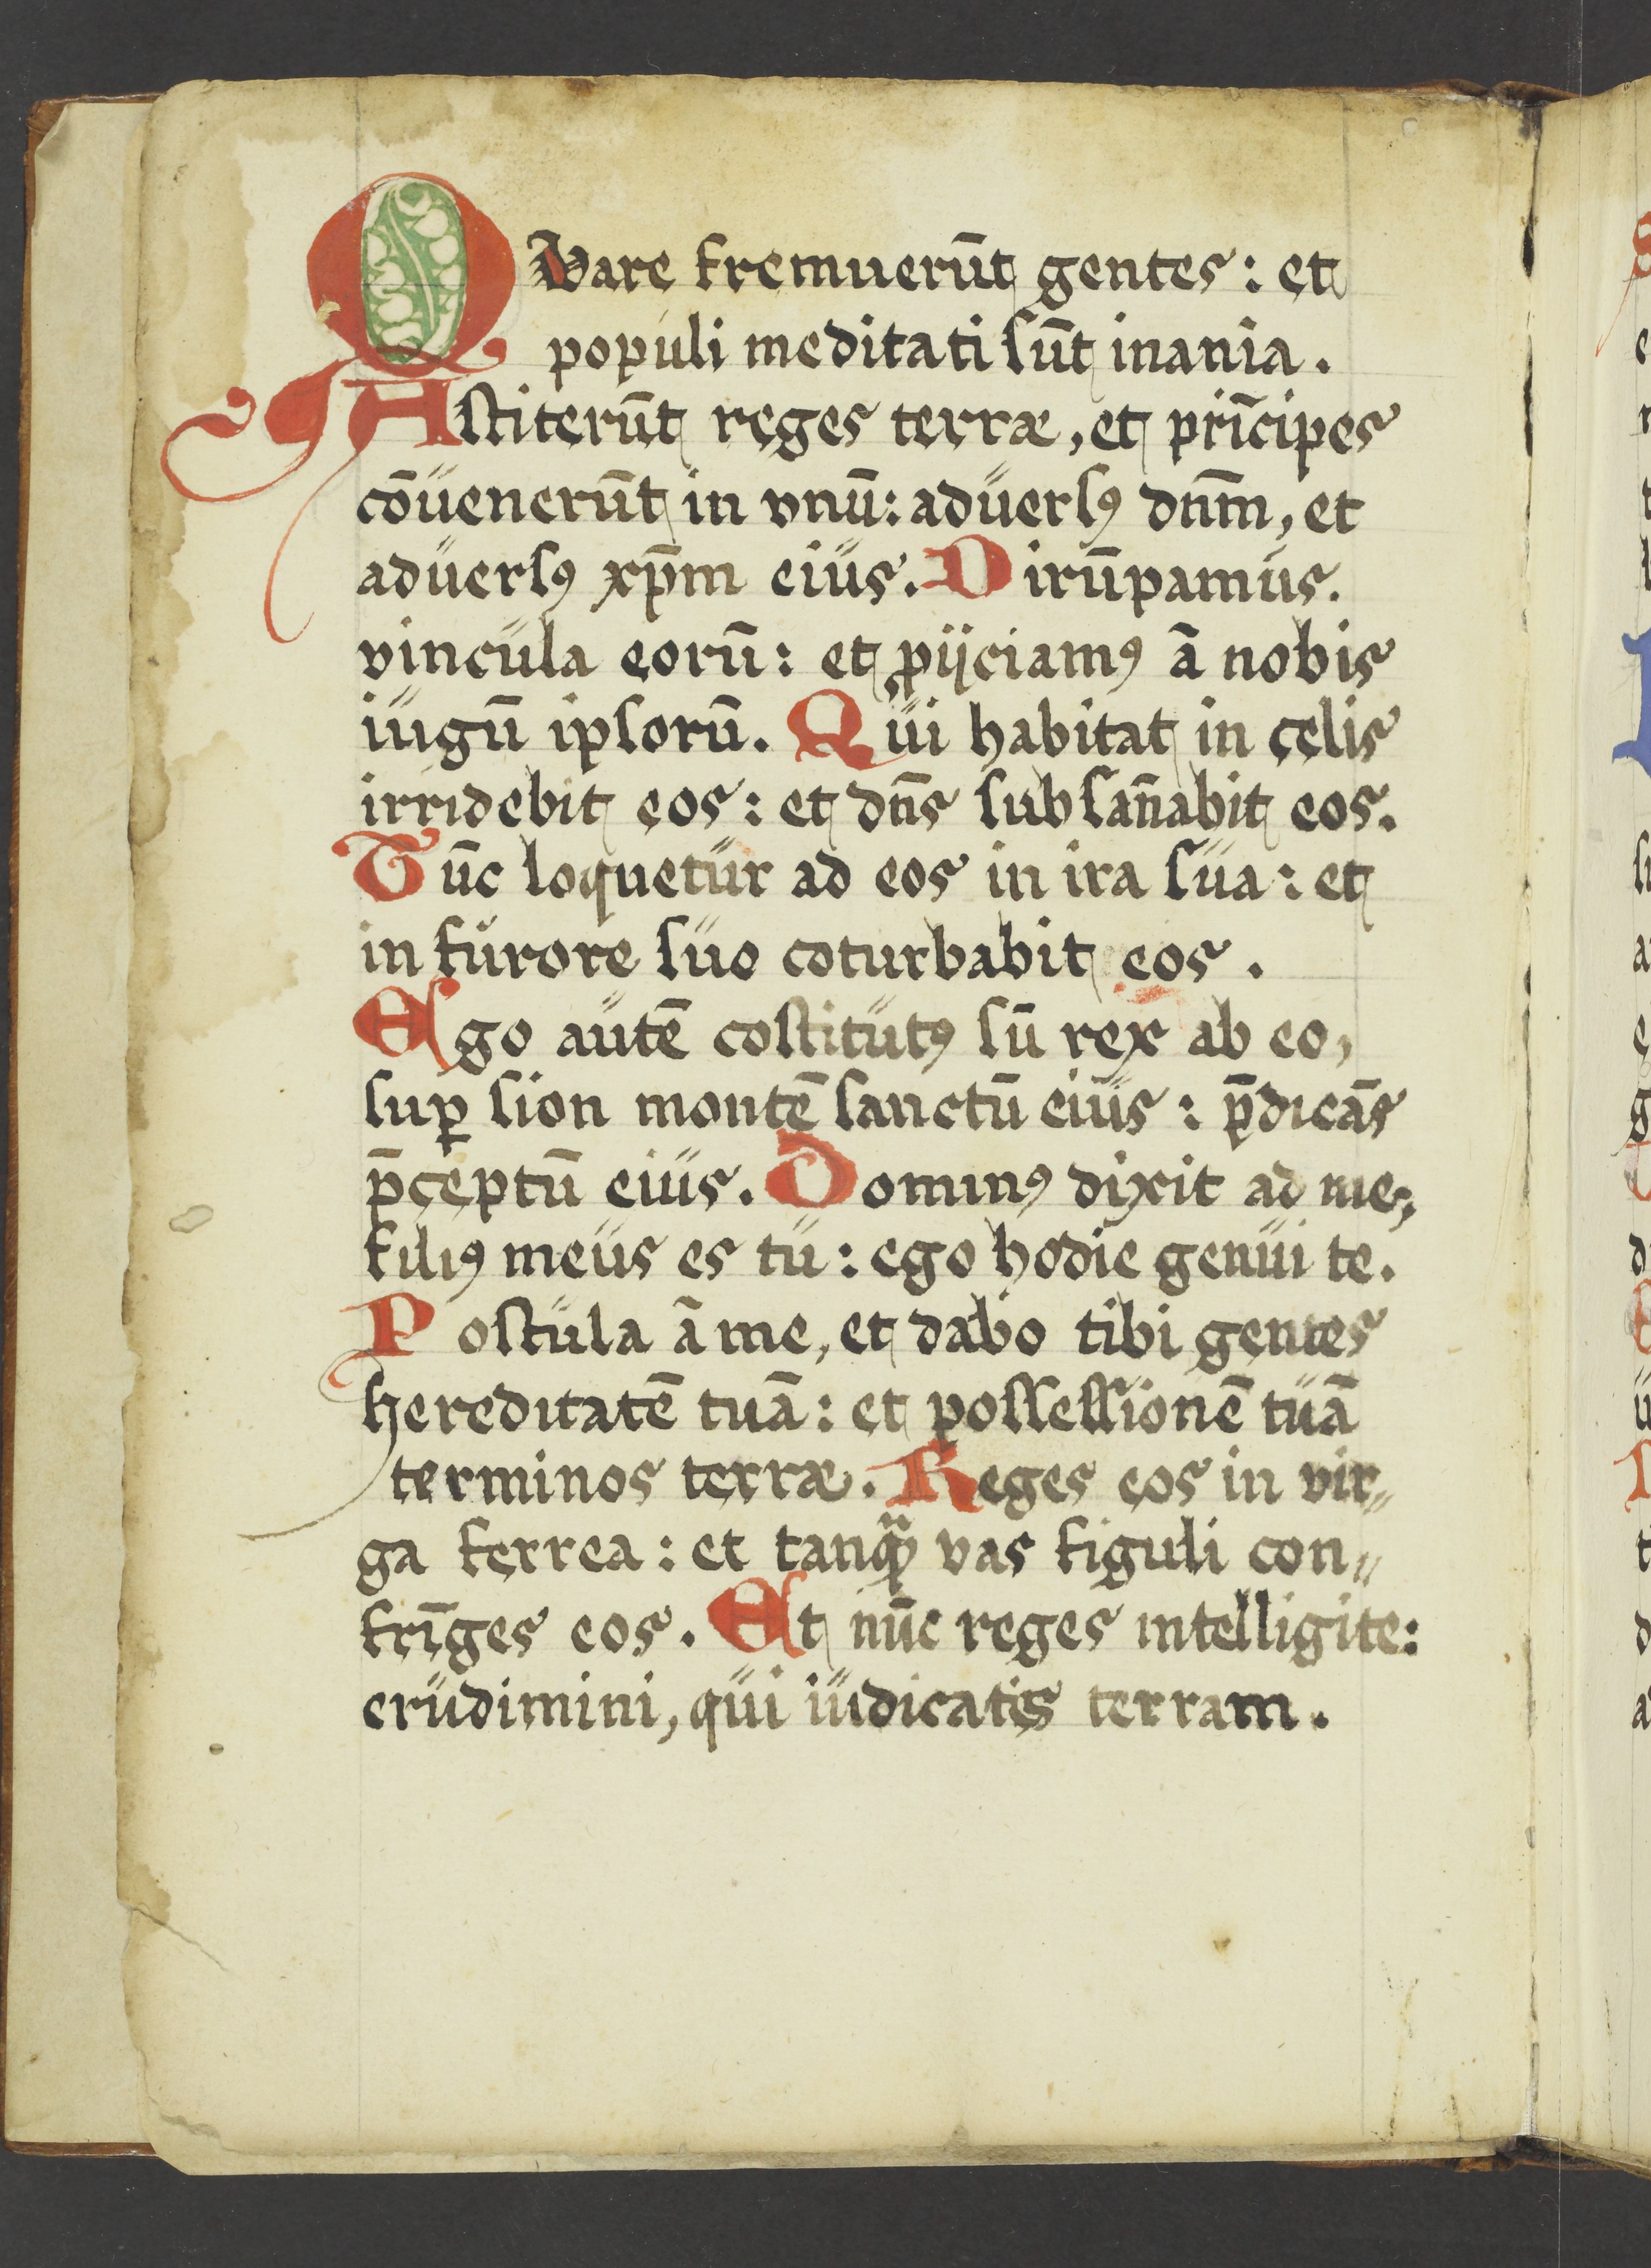 QVare fremuerūt gentes: et
populi meditati sūt inania.
Astiterūt reges terræ, et prīcipes
cōuenerūt in vnū: aduersꝰ dn̄m, et
aduersꝰ xp̄m eius. Dirūpamus.
vincula eorū: et ꝓijciamꝰ ā nobis
iugū ipsorū. Qui habitat in cęlis
irridebit eos: et dn̄s subsan̄abit eos.
Tūc loquetur ad eos in ira sua: et
in furore suo coturbabit eos.
Ego autē costitutꝰ sū rex ab eo,
suꝑ sion montē sanctū eius: p̄dicās
p̄ceptū eius. Dominꝰ dixit ad me,
filiꝰ meus es tu: ego hodie genui te.
Postula ā me, et dabo tibi gentes
hereditatē tuā: et possessionē tuā
terminos terræ. Reges eos in vir„
ga ferrea: et tanqᷓ vas figuli con„
frīges eos. Et nūc reges intelligite:
erudimini, qui iudicatis terram.